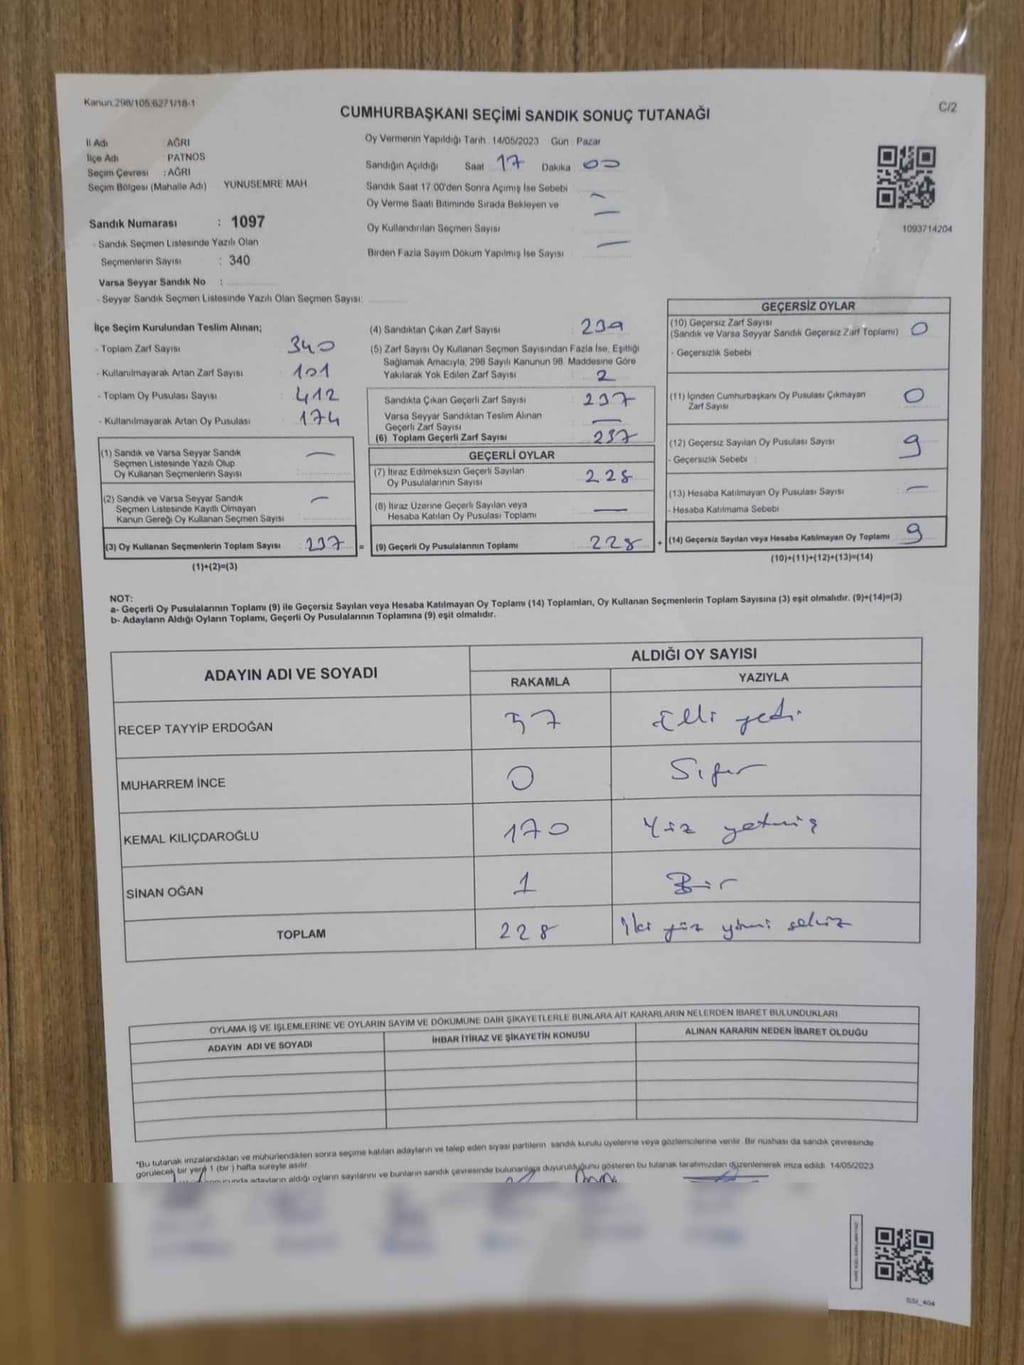 Kanun:298/105;6271/18-1
C/2
CUMHURBAŞKANI SEÇİMİ SANDIK SONUÇ TUTANAĞI
İl Adı AĞRI
İlçe Adı PATNOS
Seçim Çevresi : AĞRI
Seçim Bölgesi (Mahalle Adı) YUNUSEMRE MAH
Sandık Numarası : 1097
- Sandık Seçmen Listesinde Yazılı Olan
Seçmenlerin Sayısı : 340
Varsa Seyyar Sandık No :
- Seyyar Sandık Seçmen Listesinde Yazılı Olan Seçmen Sayısı:
Oy Vermenin Yapıldığı Tarih : 14/05/2023 Gün : Pazar
Sandığın Açıldığı Saat 17 Dakika 00
Sandık Saat 17:00'den Sonra Açılmış İse Sebebi
Oy Verme Saati Bitiminde Sırada Bekleyen ve —
Oy Kullandırılan Seçmen Sayısı —
Birden Fazla Sayım Döküm Yapılmış İse Sayısı —
1093714204
İlçe Seçim Kurulundan Teslim Alınan;
- Toplam Zarf Sayısı 340
- Kullanılmayarak Artan Zarf Sayısı 101
- Toplam Oy Pusulası Sayısı 412
- Kullanılmayarak Artan Oy Pusulası 174
(1) Sandık ve Varsa Seyyar Sandık —
Seçmen Listesinde Yazılı Olup
Oy Kullanan Seçmenlerin Sayısı
(2) Sandık ve Varsa Seyyar Sandık —
Seçmen Listesinde Kayıtlı Olmayan
Kanun Gereği Oy Kullanan Seçmen Sayısı
(3) Oy Kullanan Seçmenlerin Toplam Sayısı 237 =
(1)+(2)=(3)
(4) Sandıktan Çıkan Zarf Sayısı 239
(5) Zarf Sayısı Oy Kullanan Seçmen Sayısından Fazla İse, Eşitliği
Sağlamak Amacıyla, 298 Sayılı Kanunun 98. Maddesine Göre
Yakılarak Yok Edilen Zarf Sayısı 2
Sandıkta Çıkan Geçerli Zarf Sayısı 237
Varsa Seyyar Sandıktan Teslim Alınan
Geçerli Zarf Sayısı —
(6) Toplam Geçerli Zarf Sayısı 237
GEÇERLİ OYLAR
(7) İtiraz Edilmeksizin Geçerli Sayılan
Oy Pusulalarının Sayısı 228
(8) İtiraz Üzerine Geçerli Sayılan veya
Hesaba Katılan Oy Pusulası Toplamı —
(9) Geçerli Oy Pusulalarının Toplamı 228 +
GEÇERSİZ OYLAR
(10) Geçersiz Zarf Sayısı
(Sandık ve Varsa Seyyar Sandık Geçersiz Zarf Toplamı) 0
- Geçersizlik Sebebi :
(11) İçinden Cumhurbaşkanı Oy Pusulası Çıkmayan
Zarf Sayısı 0
(12) Geçersiz Sayılan Oy Pusulası Sayısı 9
- Geçersizlik Sebebi :
(13) Hesaba Katılmayan Oy Pusulası Sayısı —
- Hesaba Katılmama Sebebi
(14) Geçersiz Sayılan veya Hesaba Katılmayan Oy Toplamı 9
(10)+(11)+(12)+(13)=(14)
NOT:
a- Geçerli Oy Pusulalarının Toplamı (9) ile Geçersiz Sayılan veya Hesaba Katılmayan Oy Toplamı (14) Toplamları, Oy Kullanan Seçmenlerin Toplam Sayısına (3) eşit olmalıdır. (9)+(14)=(3)
b- Adayların Aldığı Oyların Toplamı, Geçerli Oy Pusulalarının Toplamına (9) eşit olmalıdır.
ADAYIN ADI VE SOYADI
ALDIĞI OY SAYISI
RAKAMLA YAZIYLA
RECEP TAYYİP ERDOĞAN 57 Elli yedi
MUHARREM İNCE 0 Sıfır
KEMAL KILIÇDAROĞLU 170 Yüz yetmiş
SİNAN OĞAN 1 Bir
TOPLAM 228 İki yüz yirmi sekiz
OYLAMA İŞ VE İŞLEMLERİNE VE OYLARIN SAYIM VE DÖKÜMÜNE DAİR ŞİKAYETLERLE BUNLARA AİT KARARLARIN NELERDEN İBARET BULUNDUKLARI
ADAYIN ADI VE SOYADI İHBAR İTİRAZ VE ŞİKAYETİN KONUSU ALINAN KARARIN NEDEN İBARET OLDUĞU
*Bu tutanak imzalandıktan ve mühürlendikten sonra seçime katılan adayların ve talep eden siyasi partilerin sandık kurulu üyelerine veya gözlemcilerine verilir. Bir nüshası da sandık çevresinde
görülecek bir yere 1 (bir) hafta süreyle asılır.
sonucunda adayların aldığı oyların sayılarını ve bunların sandık çevresinde bulunanlara duyurulduğunu gösteren bu tutanak tarafımızdan düzenlenerek imza edildi. 14/05/2023